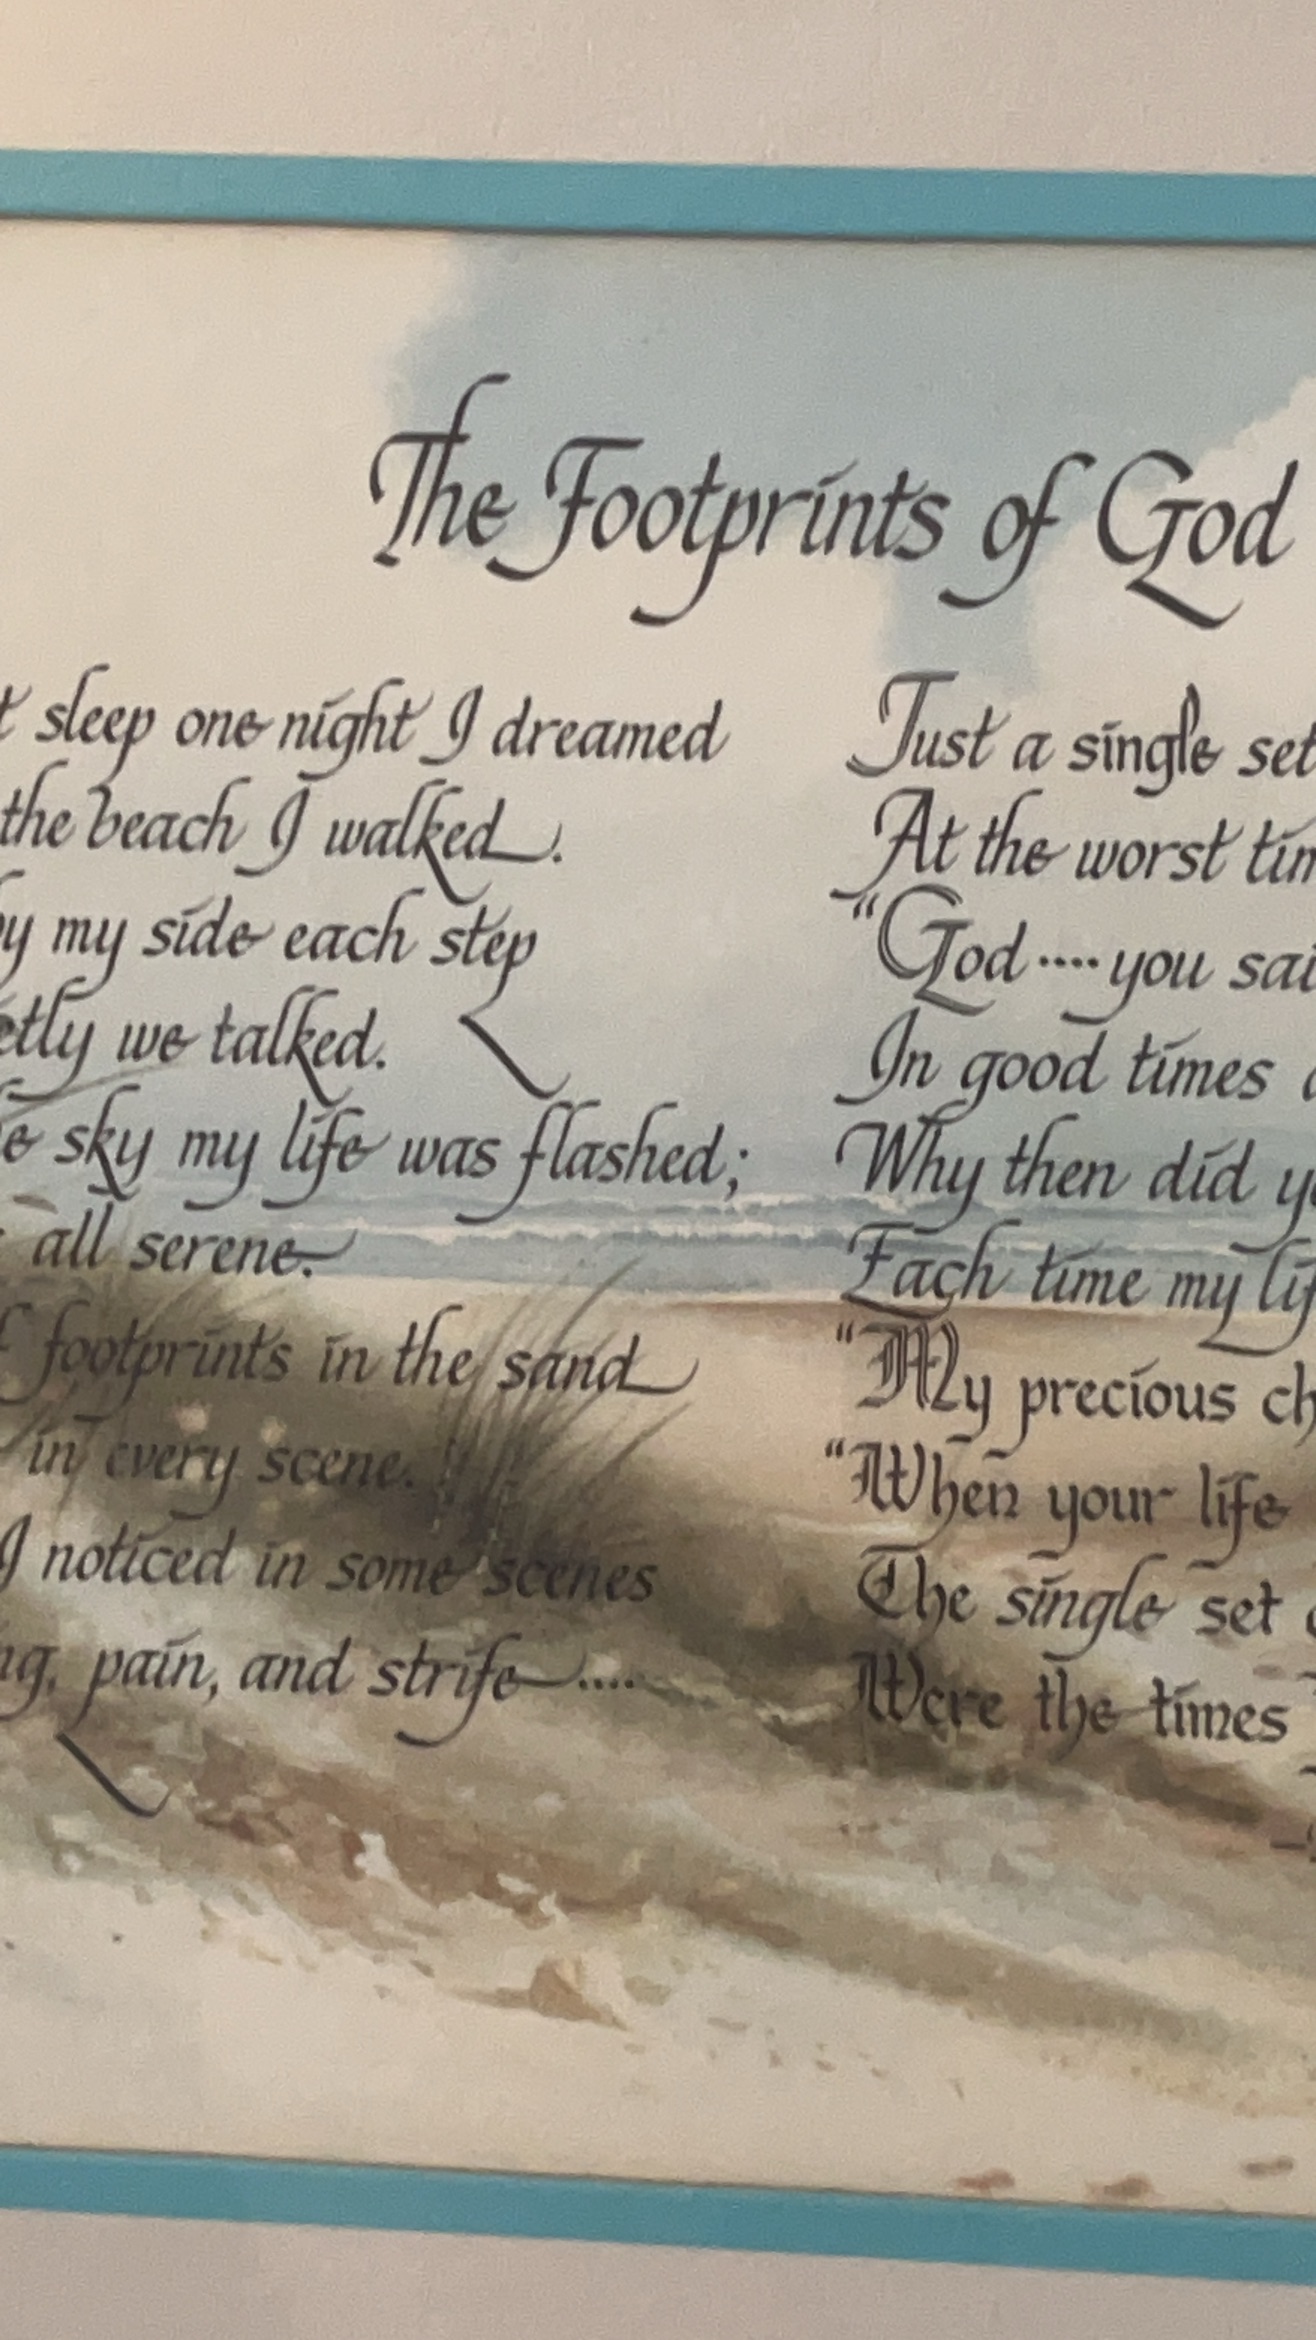 The Footprints of God
sleep one night I dreamed
the beach I walked.
by my side each step
we talked.
sky my life was flashed;
all serene.
footprints in the sand
in every scene.
I noticed in some scenes
pain, and strife ....
Just a single set
At the worst
"God .... you
In good times
Why then did
Each time my
"My precious
"When your life
The single set
Were the times